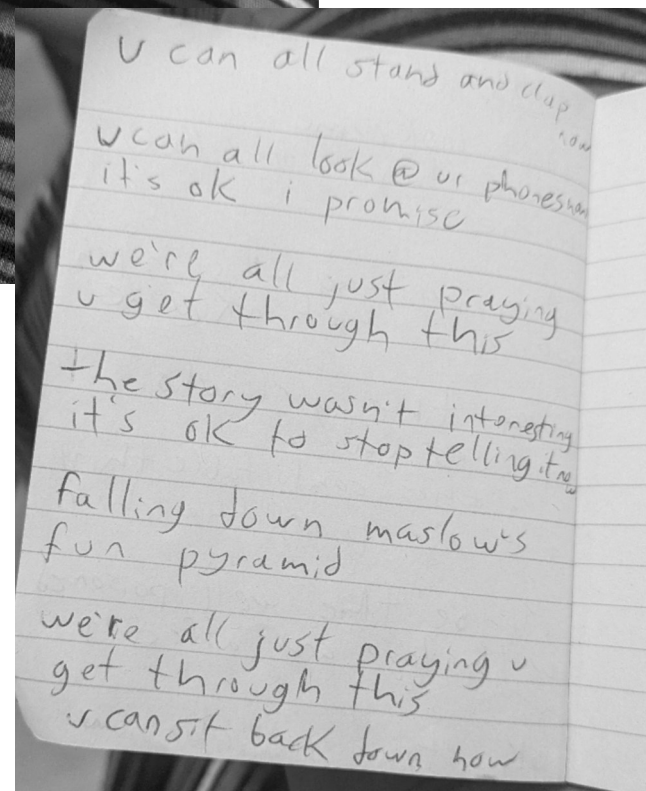 u can all stand and clap
now
u can all look @ ur phones now
it's ok i promise
we're all just praying
u get through this
the story wasn't interesting
it's ok to stop telling it now
falling down maslow's
fun pyramid
we're all just praying u
get through this
u can sit back down now